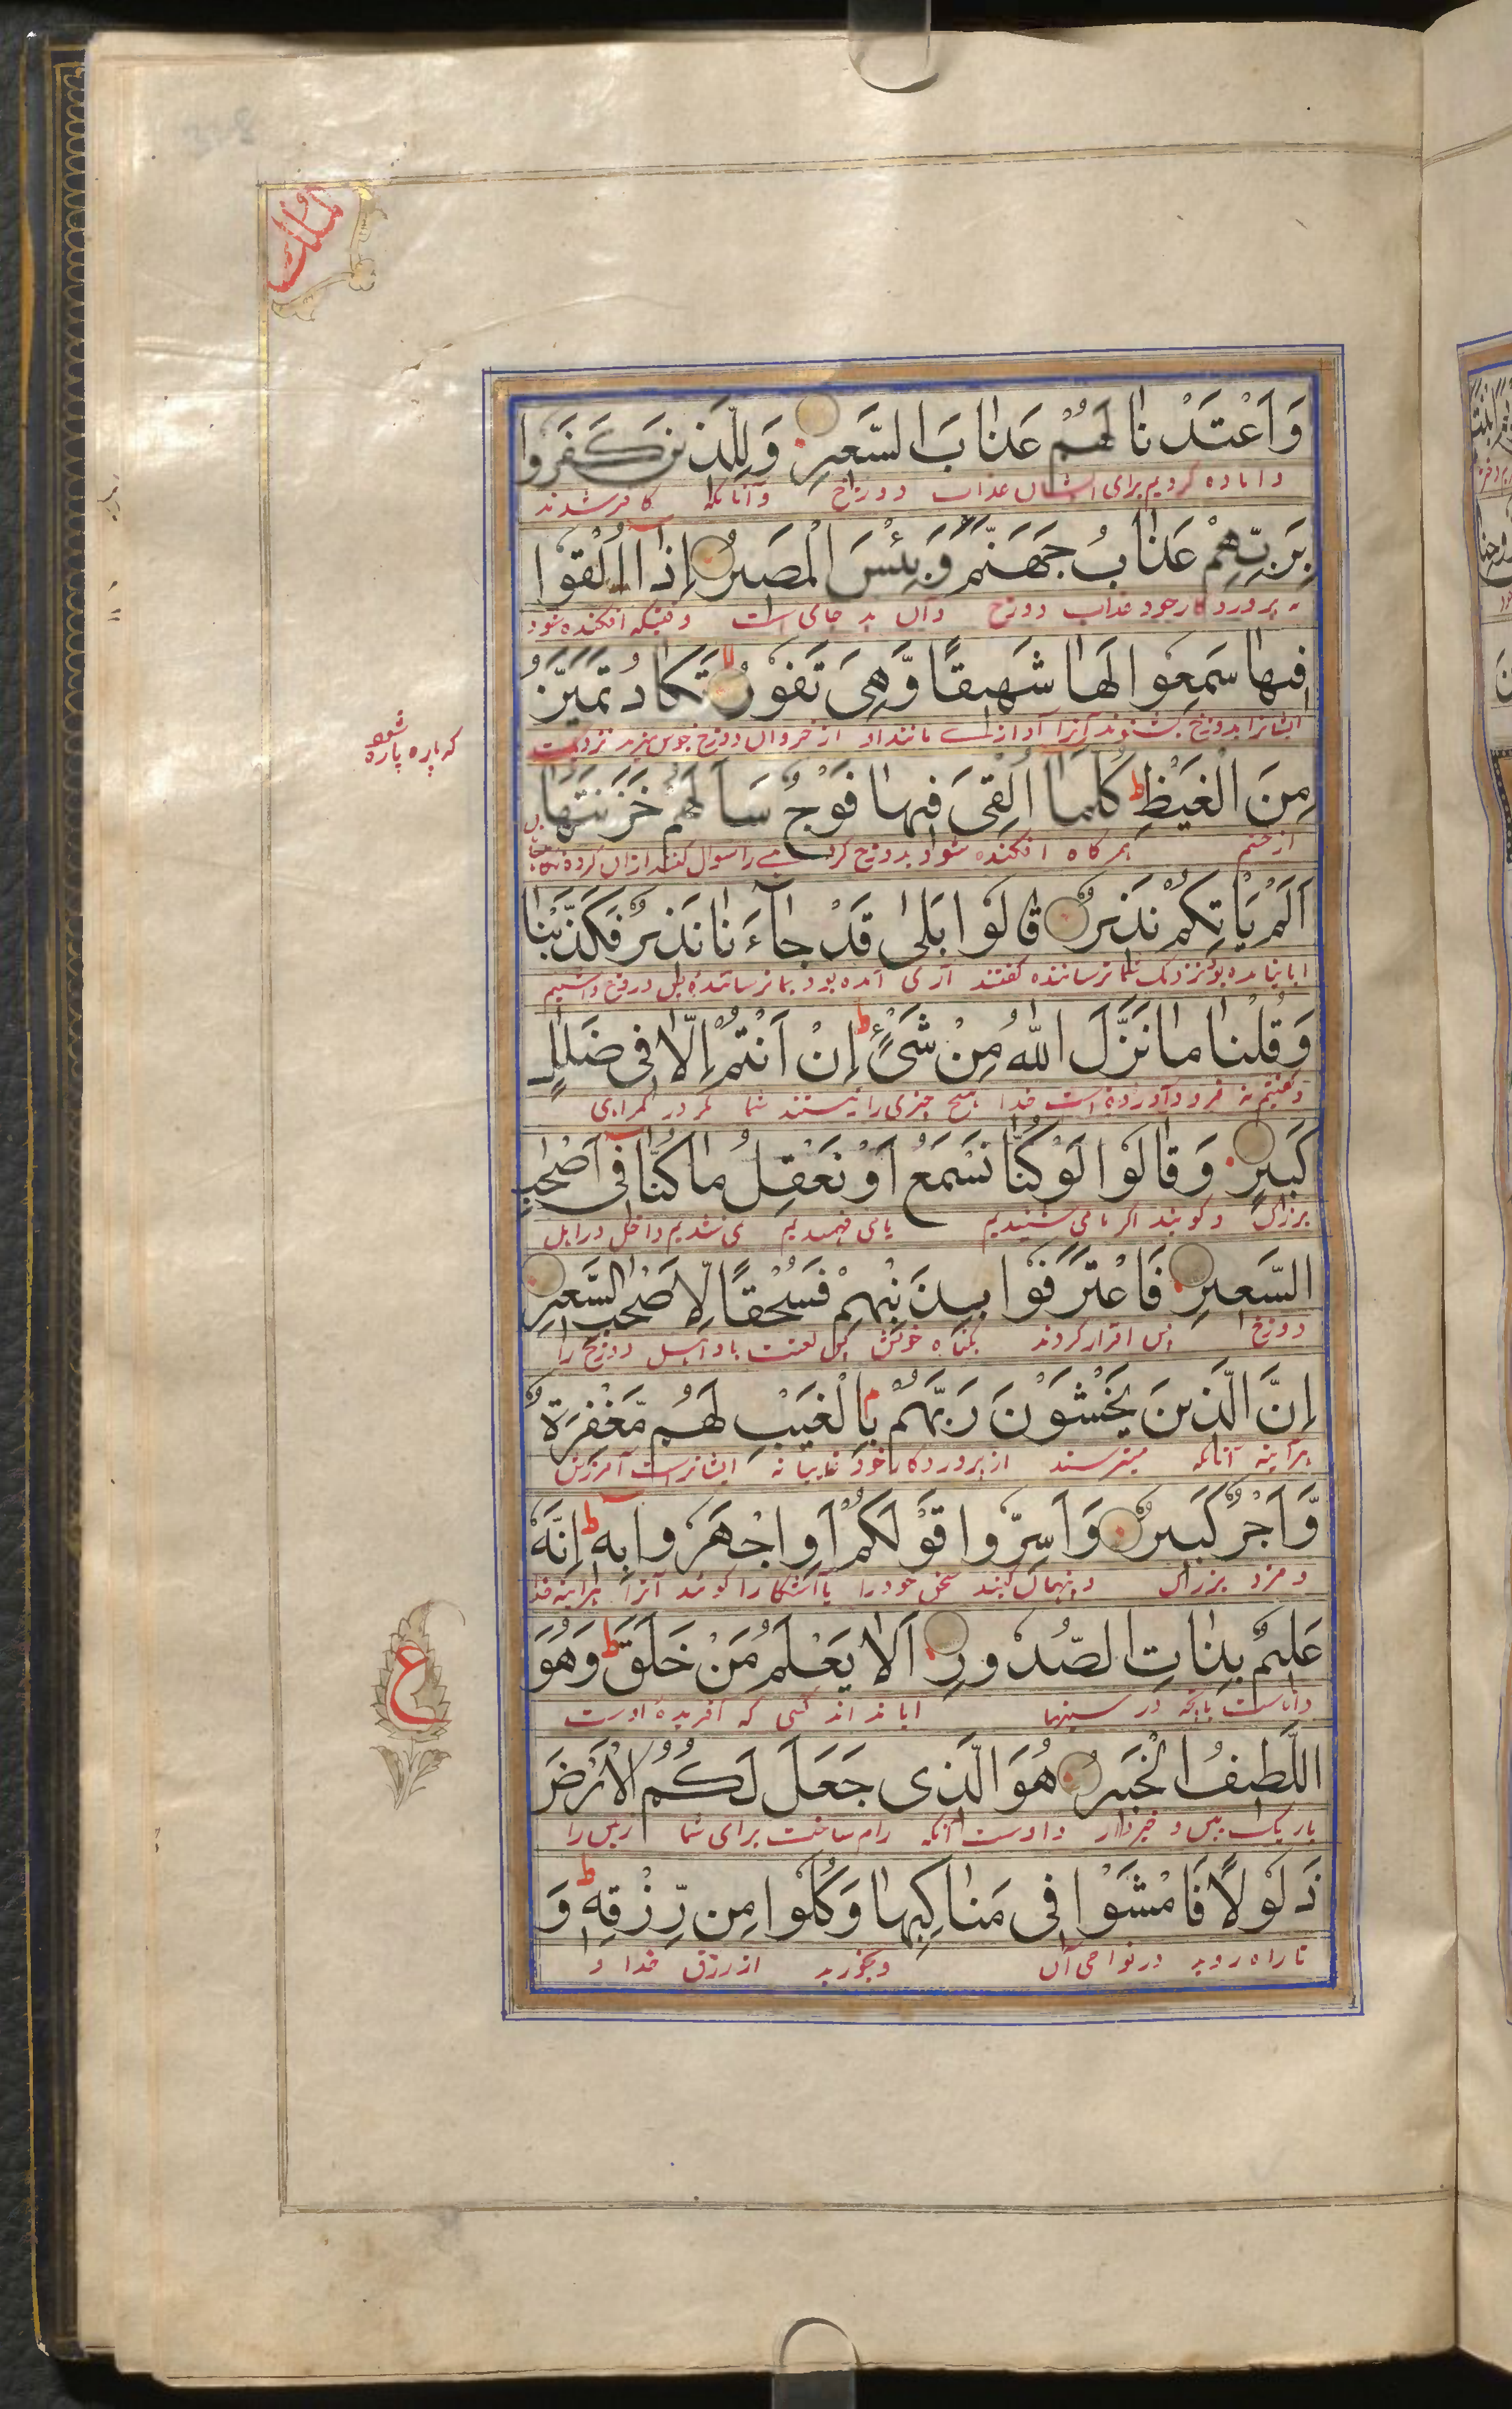 الملك
وَاَعْتَدْنَا لَهُمْ عَذَابَ السَّعِيرِ وَلِلَّذِينَ كَفَرُوا
و اماده کردیم برای ایشان عذاب دوزخ و آنانکه کافر شدند
بِرَبِّهِمْ عَذَابُ جَهَنَّمَ وَبِئْسَ الْمَصِيرُ اِذَا اُلْقُوا
به پروردکار خود عذاب دوزخ و آن بد جای است وقتیکه افکنده شود
فِيهَا سَمِعُوا لَهَا شَهِيقًا وَّهِىَ تَفُورُ تَكَادُ تَمَيَّزُ
ایشانرا بدوزخ بشنوند آنرا آوازی مانند آواز خر و آن دوزخ جوش میزند نزدیکست
که پاره پاره شود
مِنَ الْغَيْظِ كُلَّمَا اُلْقِىَ فِيهَا فَوْجٌ سَاَلَهُمْ خَزَنَتُهَا
از خشم هر کاه افکنده شود بدوزخ کروهی را سوال کنند از آن کروه
اَلَمْ يَاْتِكُمْ نَذِيرٌ قَالُوا بَلٰى قَدْ جَآءَنَا نَذِيرٌ فَكَذَّبْنَا
ایا نیامده بود نزدیک شما ترساننده کفتند آری آمده بود بما ترساننده پس دروغ داشتیم
وَقُلْنَا مَا نَزَّلَ اللّٰهُ مِنْ شَىْءٍ اِنْ اَنْتُمْ اِلَّا فِى ضَلٰلٍ
و کفتیم نه فرود آورده است خدا هیچ چیزی را نیستند شما مکر در کمراهی
كَبِيرٍ وَقَالُوا لَوْ كُنَّا نَسْمَعُ اَوْ نَعْقِلُ مَا كُنَّا فِى اَصْحٰبِ
بزرک و کویند اکر ما می شنیدیم یا می فهمیدیم نمی شدیم داخل در اهل
السَّعِيرِ فَاعْتَرَفُوا بِذَنْبِهِمْ فَسُحْقًا لِّاَصْحٰبِ السَّعِيرِ
دوزخ پس اقرار کردند بکناه خویش پس لعنت باد اهل دوزخ را
اِنَّ الَّذِينَ يَخْشَوْنَ رَبَّهُمْ بِالْغَيْبِ لَهُمْ مَّغْفِرَةٌ
هرآینه آنانکه میترسند از پروردکار خود غایبانه ایشانراست آمرزش
وَّاَجْرٌ كَبِيرٌ وَاَسِرُّوا قَوْلَكُمْ اَوِ اجْهَرُوا بِهٖ اِنَّهٗ
و مزد بزرک و پنهان کنید سخن خود را یا آشکارا کویید آنرا هرآینه خدا
عَلِيمٌ بِذَاتِ الصُّدُورِ اَلَا يَعْلَمُ مَنْ خَلَقَ وَهُوَ
داناست بانچه در سینهها ایا نداند کسی که آفریده اوست
ع
اللَّطِيفُ الْخَبِيرُ هُوَ الَّذِى جَعَلَ لَكُمُ الْاَرْضَ
باریک بین و خبردار و اوست آنکه رام ساخت برای شما زمین را
ذَلُولًا فَامْشُوا فِى مَنَاكِبِهَا وَكُلُوا مِن رِّزْقِهٖ وَ
تا راه روید در نواحی آن و بخورید از رزق خدا و